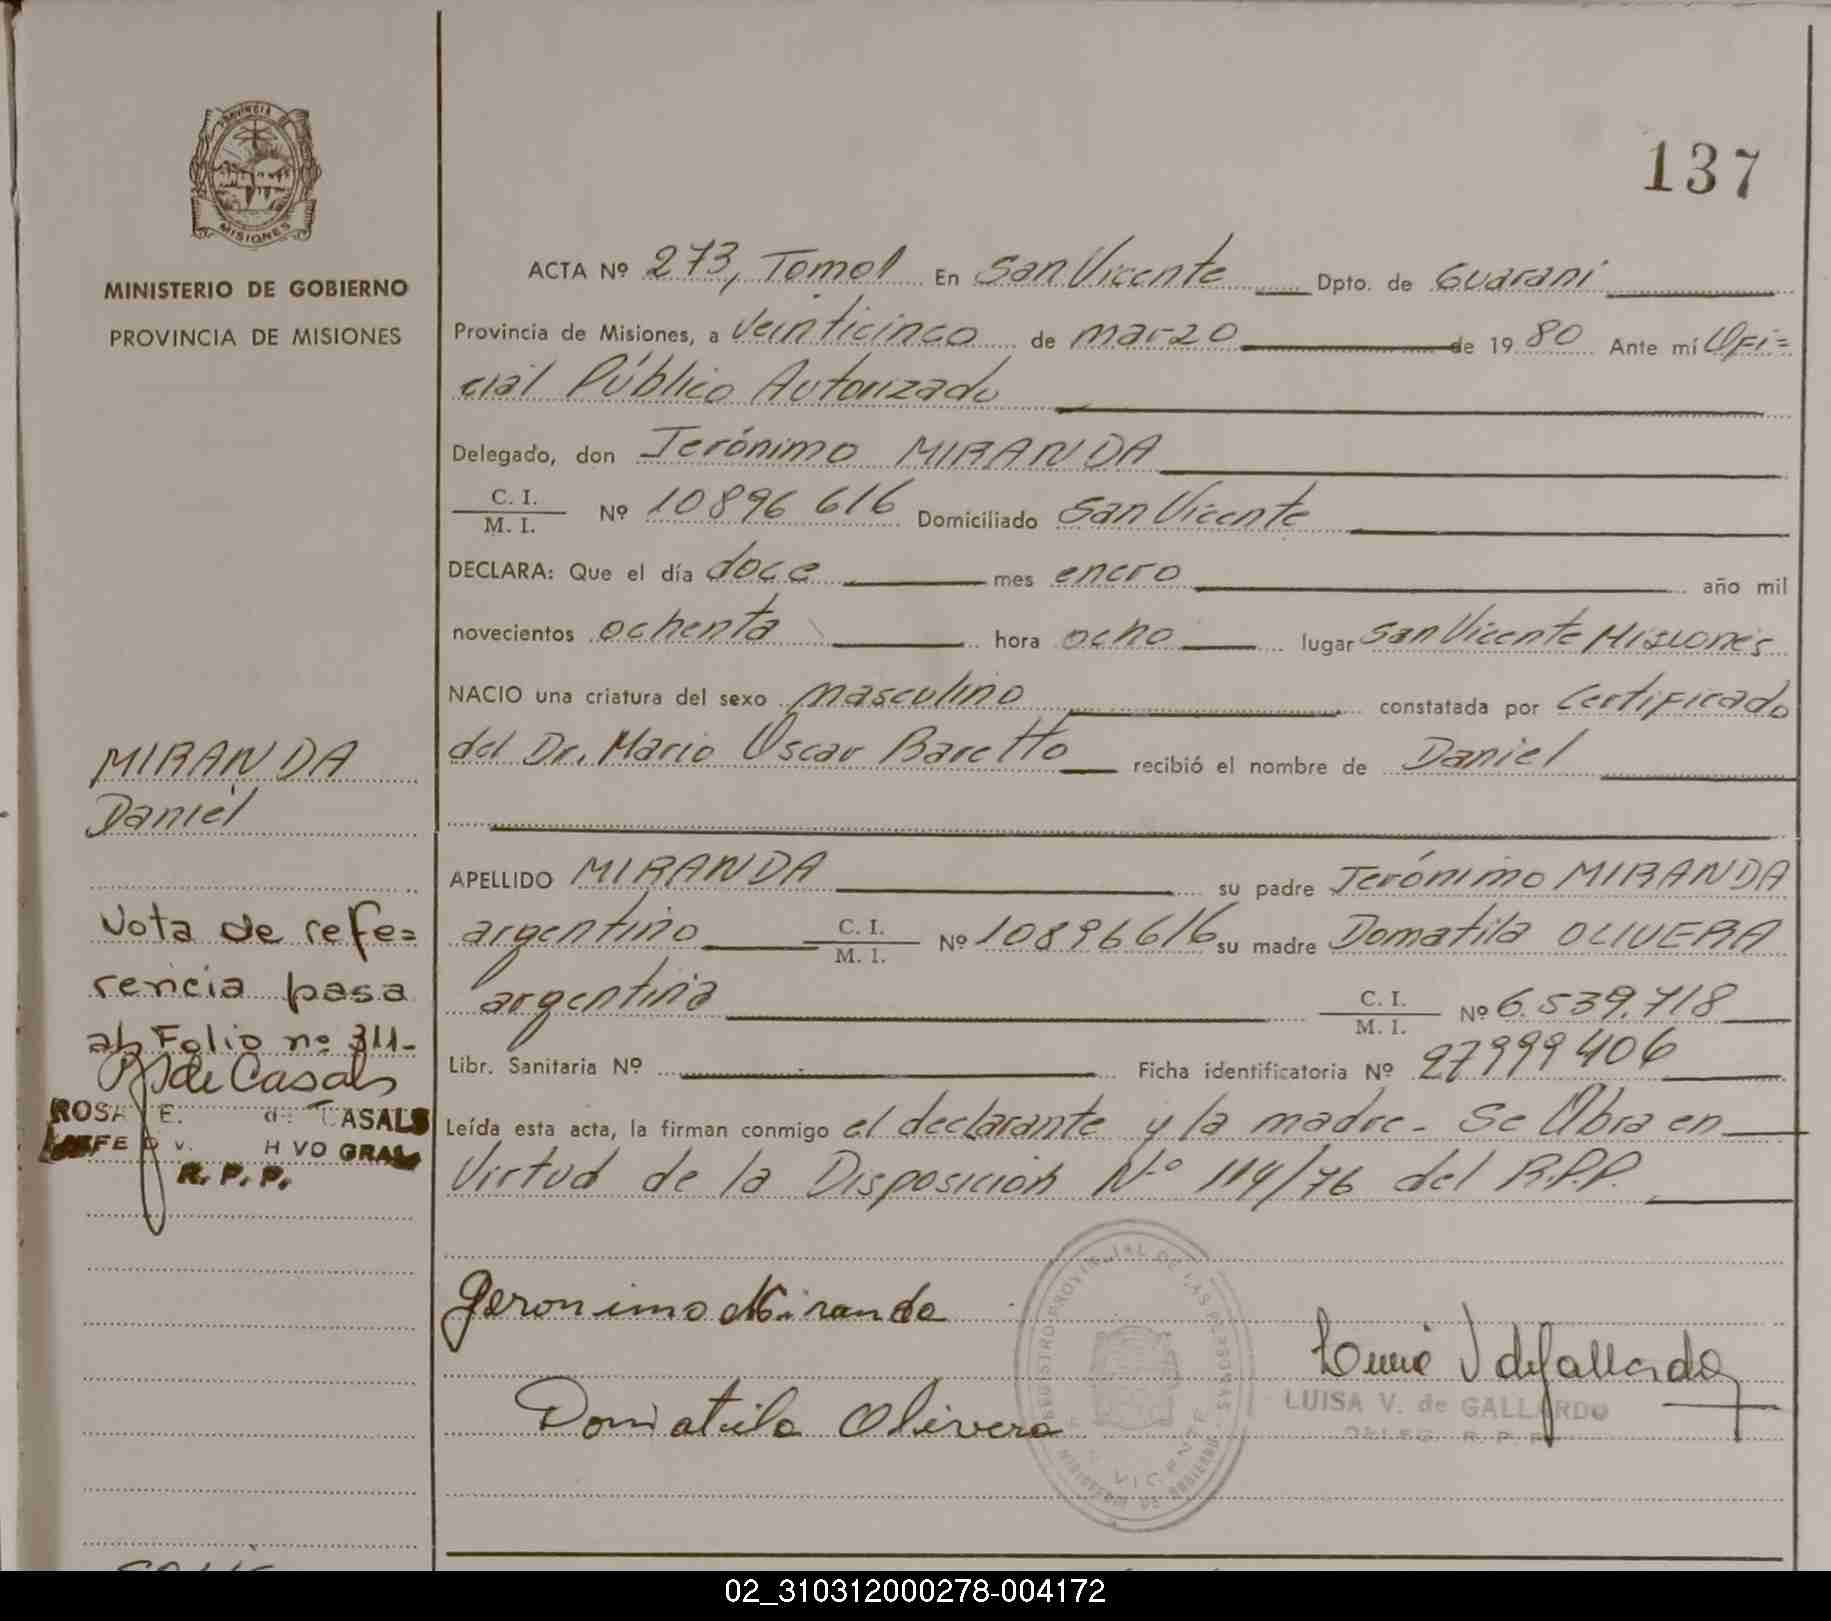 137
PROVINCIA DE
MISIONES
MINISTERIO DE GOBIERNO
PROVINCIA DE MISIONES
ACTA Nº 273, Tomo I En San Vicente Dpto. de Guaraní
Provincia de Misiones, a veinticinco de marzo de 19 80 Ante mí Ofi=
cial Público Autorizado
Delegado, don Jerónimo MIRANDA
C. I.
M. I. Nº 10896 616 Domiciliado San Vicente
DECLARA: Que el día doce mes enero año mil
novecientos ochenta hora ocho lugar San Vicente Misiones
NACIO una criatura del sexo masculino constatada por Certificado
del Dr. Mario Oscar Baretto recibió el nombre de Daniel
APELLIDO MIRANDA su padre Jerónimo MIRANDA
argentino C. I.
M. I. Nº 10896616 su madre Domatila OLIVERA
argentina C. I.
M. I. Nº 6.539.718
Libr. Sanitaria Nº Ficha identificatoria Nº 27999406
Leída esta acta, la firman conmigo el declarante y la madre. Se Obra en
Virtud de la Disposición Nº 114/76 del R.P.P.
MIRANDA
Daniel
Nota de refe=
rencia pasa
al Folio nº 311-
de Casals
ROSA E. de CASALS
JEFE DIV. GRAL
R. P. P.
Geronimo Miranda
Domatila Olivera
REGISTRO PROVINCIAL DE LAS PERSONAS
MINISTERIO DE GOBIERNO
VICENTE
V de Gallardo
LUISA V. de GALLARDO
DELEG. R. P. P.
02_310312000278-004172